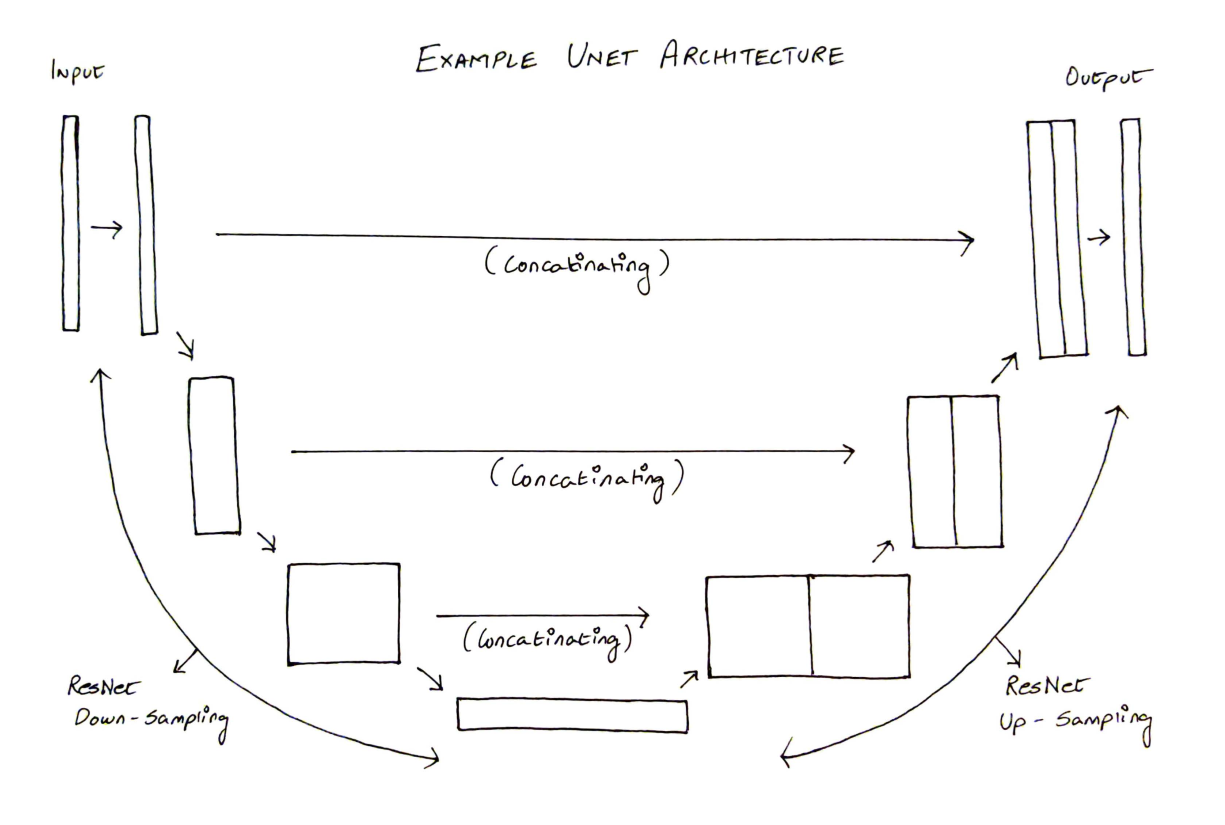 EXAMPLE UNET ARCHITECTURE
INPUT
OUTPUT
(Concatinating)
(Concatinating)
(Concatinating)
ResNet
Down-Sampling
ResNet
Up-Sampling